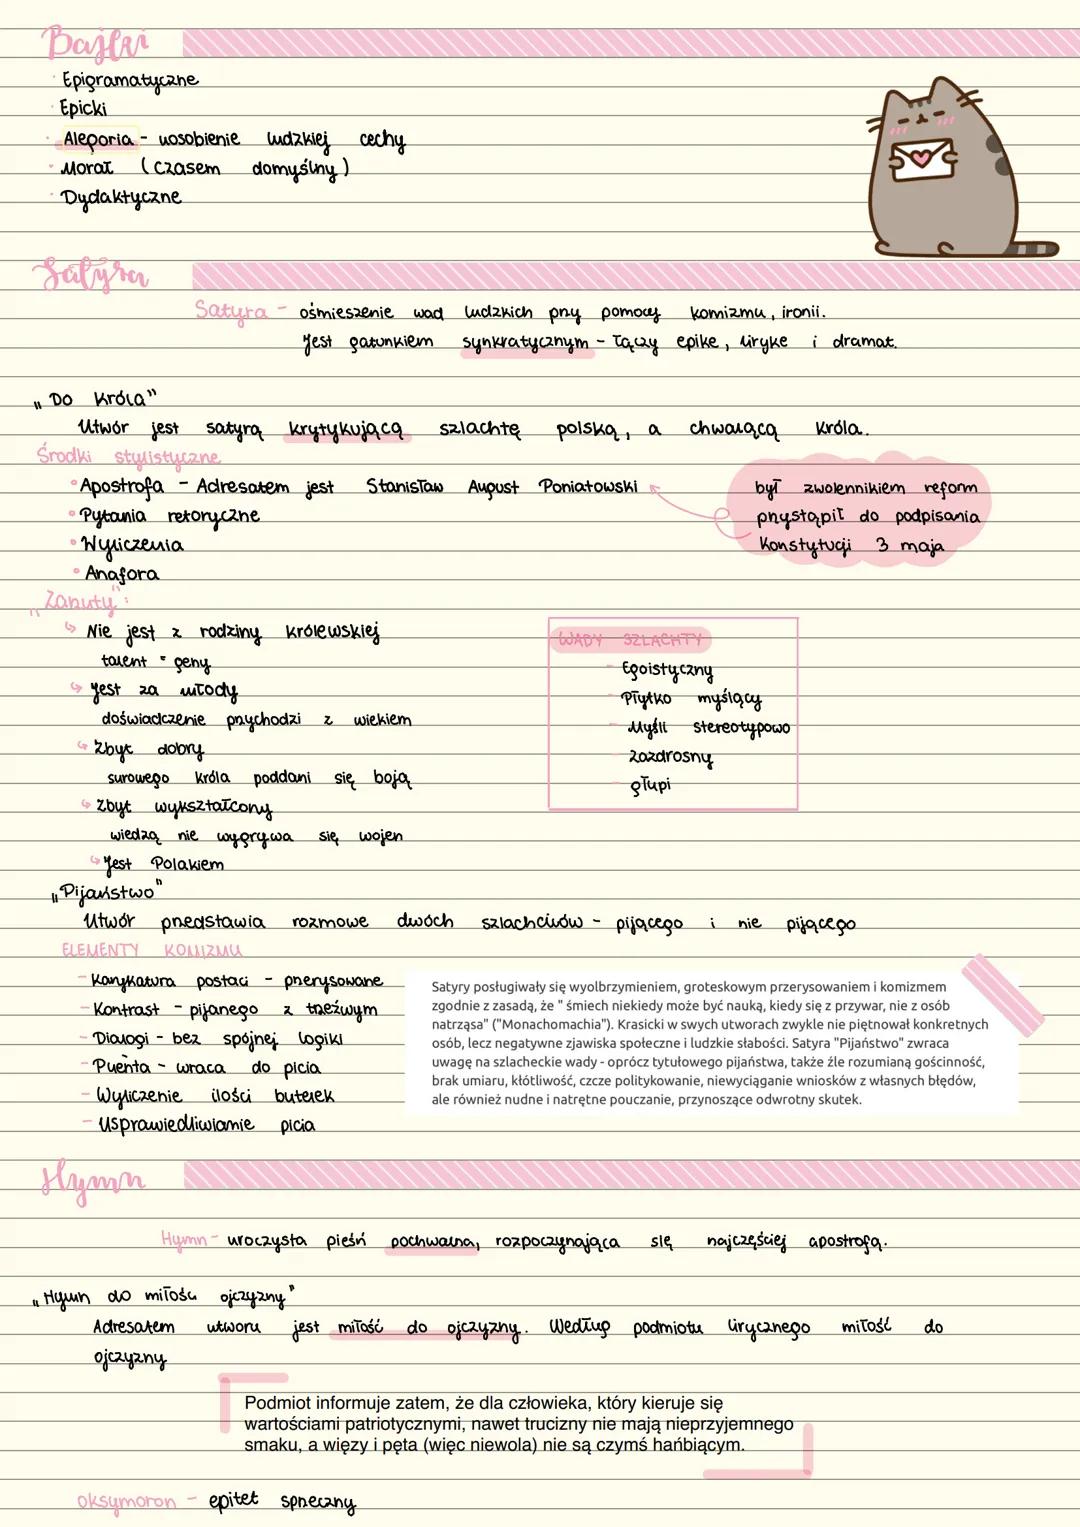 Bajki
Epigramatyczne
Epicki
Alegoria - uosobienie ludzkiej cechy
Morał (czasem domyślny)
Dydaktyczne
Satyra
Satyra - ośmieszenie wad ludzkich przy pomocy komizmu, ironii.
Jest gatunkiem synkratycznym - łączy epike, liryke i dramat.
„Do króla"
Utwór jest satyrą krytykującą szlachtę polską, a chwalącą króla.
Środki stylistyczne
Apostrofa - Adresatem jest Stanisław August Poniatowski
był zwolennikiem reform
przystąpił do podpisania
Konstytucji 3 maja
Pytania retoryczne
Wyliczenia
Anafora
„Zarzuty":
Nie jest z rodziny królewskiej
talent = geny
Jest za młody
doświadczenie przychodzi z wiekiem
Zbyt dobry
surowego króla poddani się boją
Zbyt wykształcony
wiedzą nie wygrywa się wojen
Jest Polakiem
WADY SZLACHTY
- Egoistyczny
- Płytko myślący
- Myśli stereotypowo
- Zazdrosny
- głupi
„Pijaństwo"
Utwór przedstawia rozmowe dwóch szlachciców - pijącego i nie pijącego
ELEMENTY KOMIZMU
- Karykatura postaci - przerysowane
- Kontrast - pijanego z trzeźwym
- Dialogi - bez spójnej logiki
- Puenta - wraca do picia
- Wyliczenie ilości butelek
- Usprawiedliwianie picia
Satyry posługiwały się wyolbrzymieniem, groteskowym przerysowaniem i komizmem
zgodnie z zasadą, że " śmiech niekiedy może być nauką, kiedy się z przywar, nie z osób
natrząsa" ("Monachomachia"). Krasicki w swych utworach zwykle nie piętnował konkretnych
osób, lecz negatywne zjawiska społeczne i ludzkie słabości. Satyra "Pijaństwo" zwraca
uwagę na szlacheckie wady - oprócz tytułowego pijaństwa, także źle rozumianą gościnność,
brak umiaru, kłótliwość, czcze politykowanie, niewyciąganie wniosków z własnych błędów,
ale również nudne i natrętne pouczanie, przynoszące odwrotny skutek.
Hymn
Hymn - uroczysta pieśń pochwalna, rozpoczynająca się najczęściej apostrofą.
„Hymn do miłości ojczyzny"
Adresatem utworu jest miłość do ojczyzny. Według podmiotu lirycznego miłość do
ojczyzny
Podmiot informuje zatem, że dla człowieka, który kieruje się
wartościami patriotycznymi, nawet trucizny nie mają nieprzyjemnego
smaku, a więzy i pęta (więc niewola) nie są czymś hańbiącym.
oksymoron - epitet sprzeczny